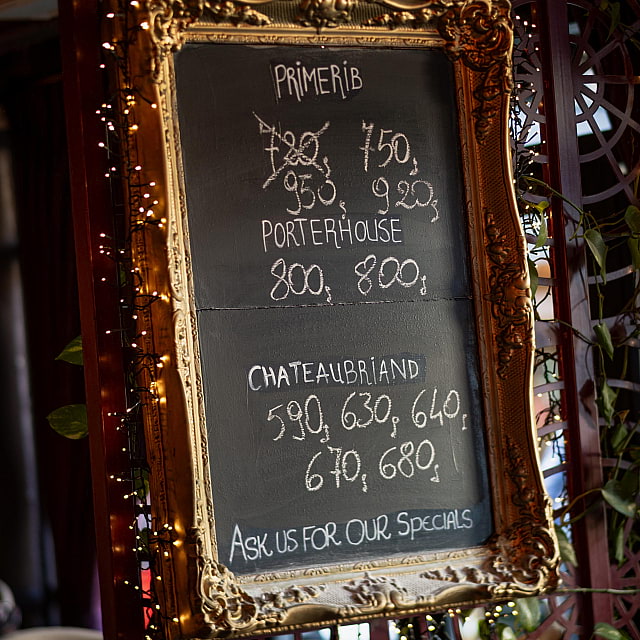 PRIMERIB
780g 750g
950g 920g
PORTERHOUSE
800g 800g
CHATEAUBRIAND
590g 630g 640g
670g 680g
ASK US FOR OUR SPECIALS